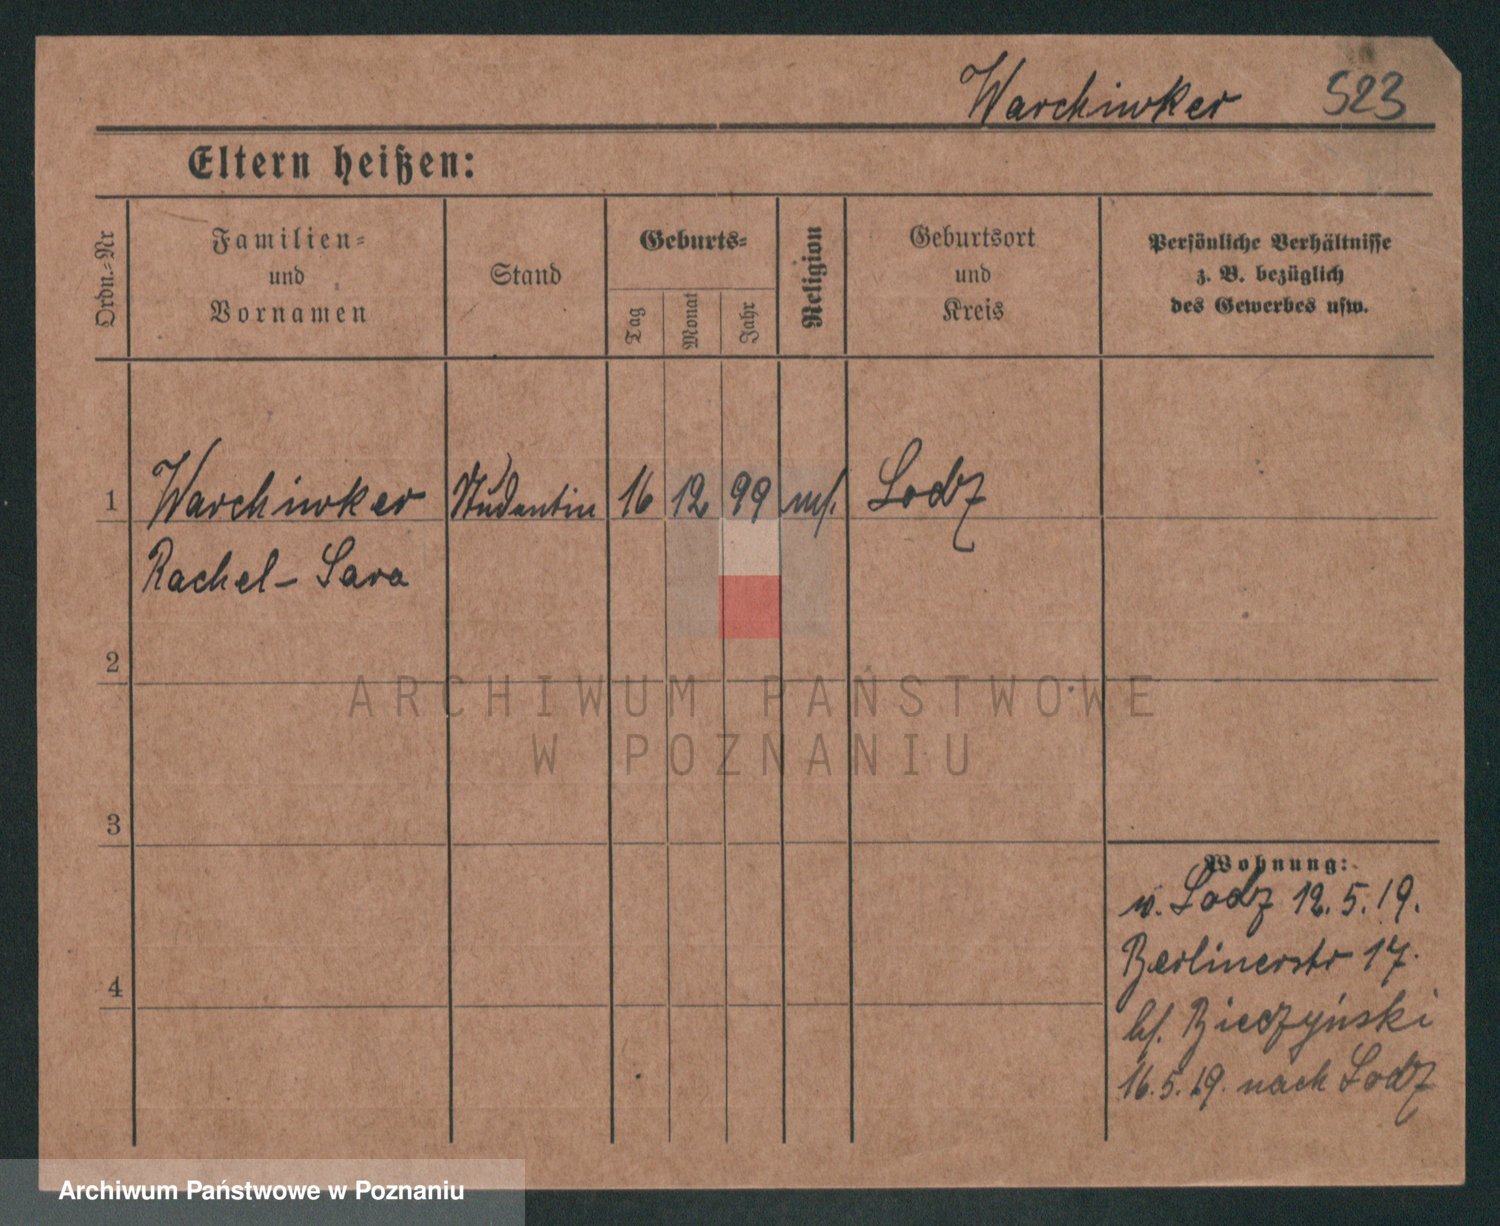 Warchiwker 523
Eltern heißen:
Ordn.-Nr
Familien-
und
Vornamen
Stand
Geburts-
Tag
Monat
Jahr
Religion
Geburtsort
und
Kreis
Persönliche Verhältnisse
z. B. bezüglich
des Gewerbes usw.
1 Warchiwker Studentin 16 12 99 Lodz
Rachel-Sara
2
3
4
Wohnung:
v. Lodz 12.5.19.
Berlinerstr 17.
bf. Bieczyński
16.5.19. nach Lodz
ARCHIWUM PAŃSTWOWE
W POZNANIU
Archiwum Państwowe w Poznaniu